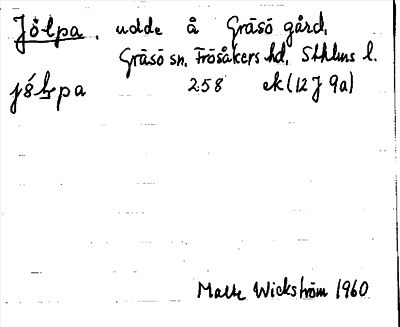 Jölpa, udde å Gräsö gård,
Gräsö sn, Frösåkers hd, Sthlms l.
258 ek (12J 9a)
Malte Wickström 1960